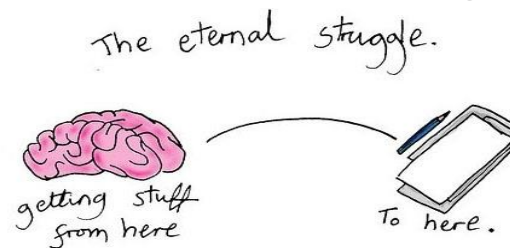 The eternal struggle.
getting stuff
from here
To here.